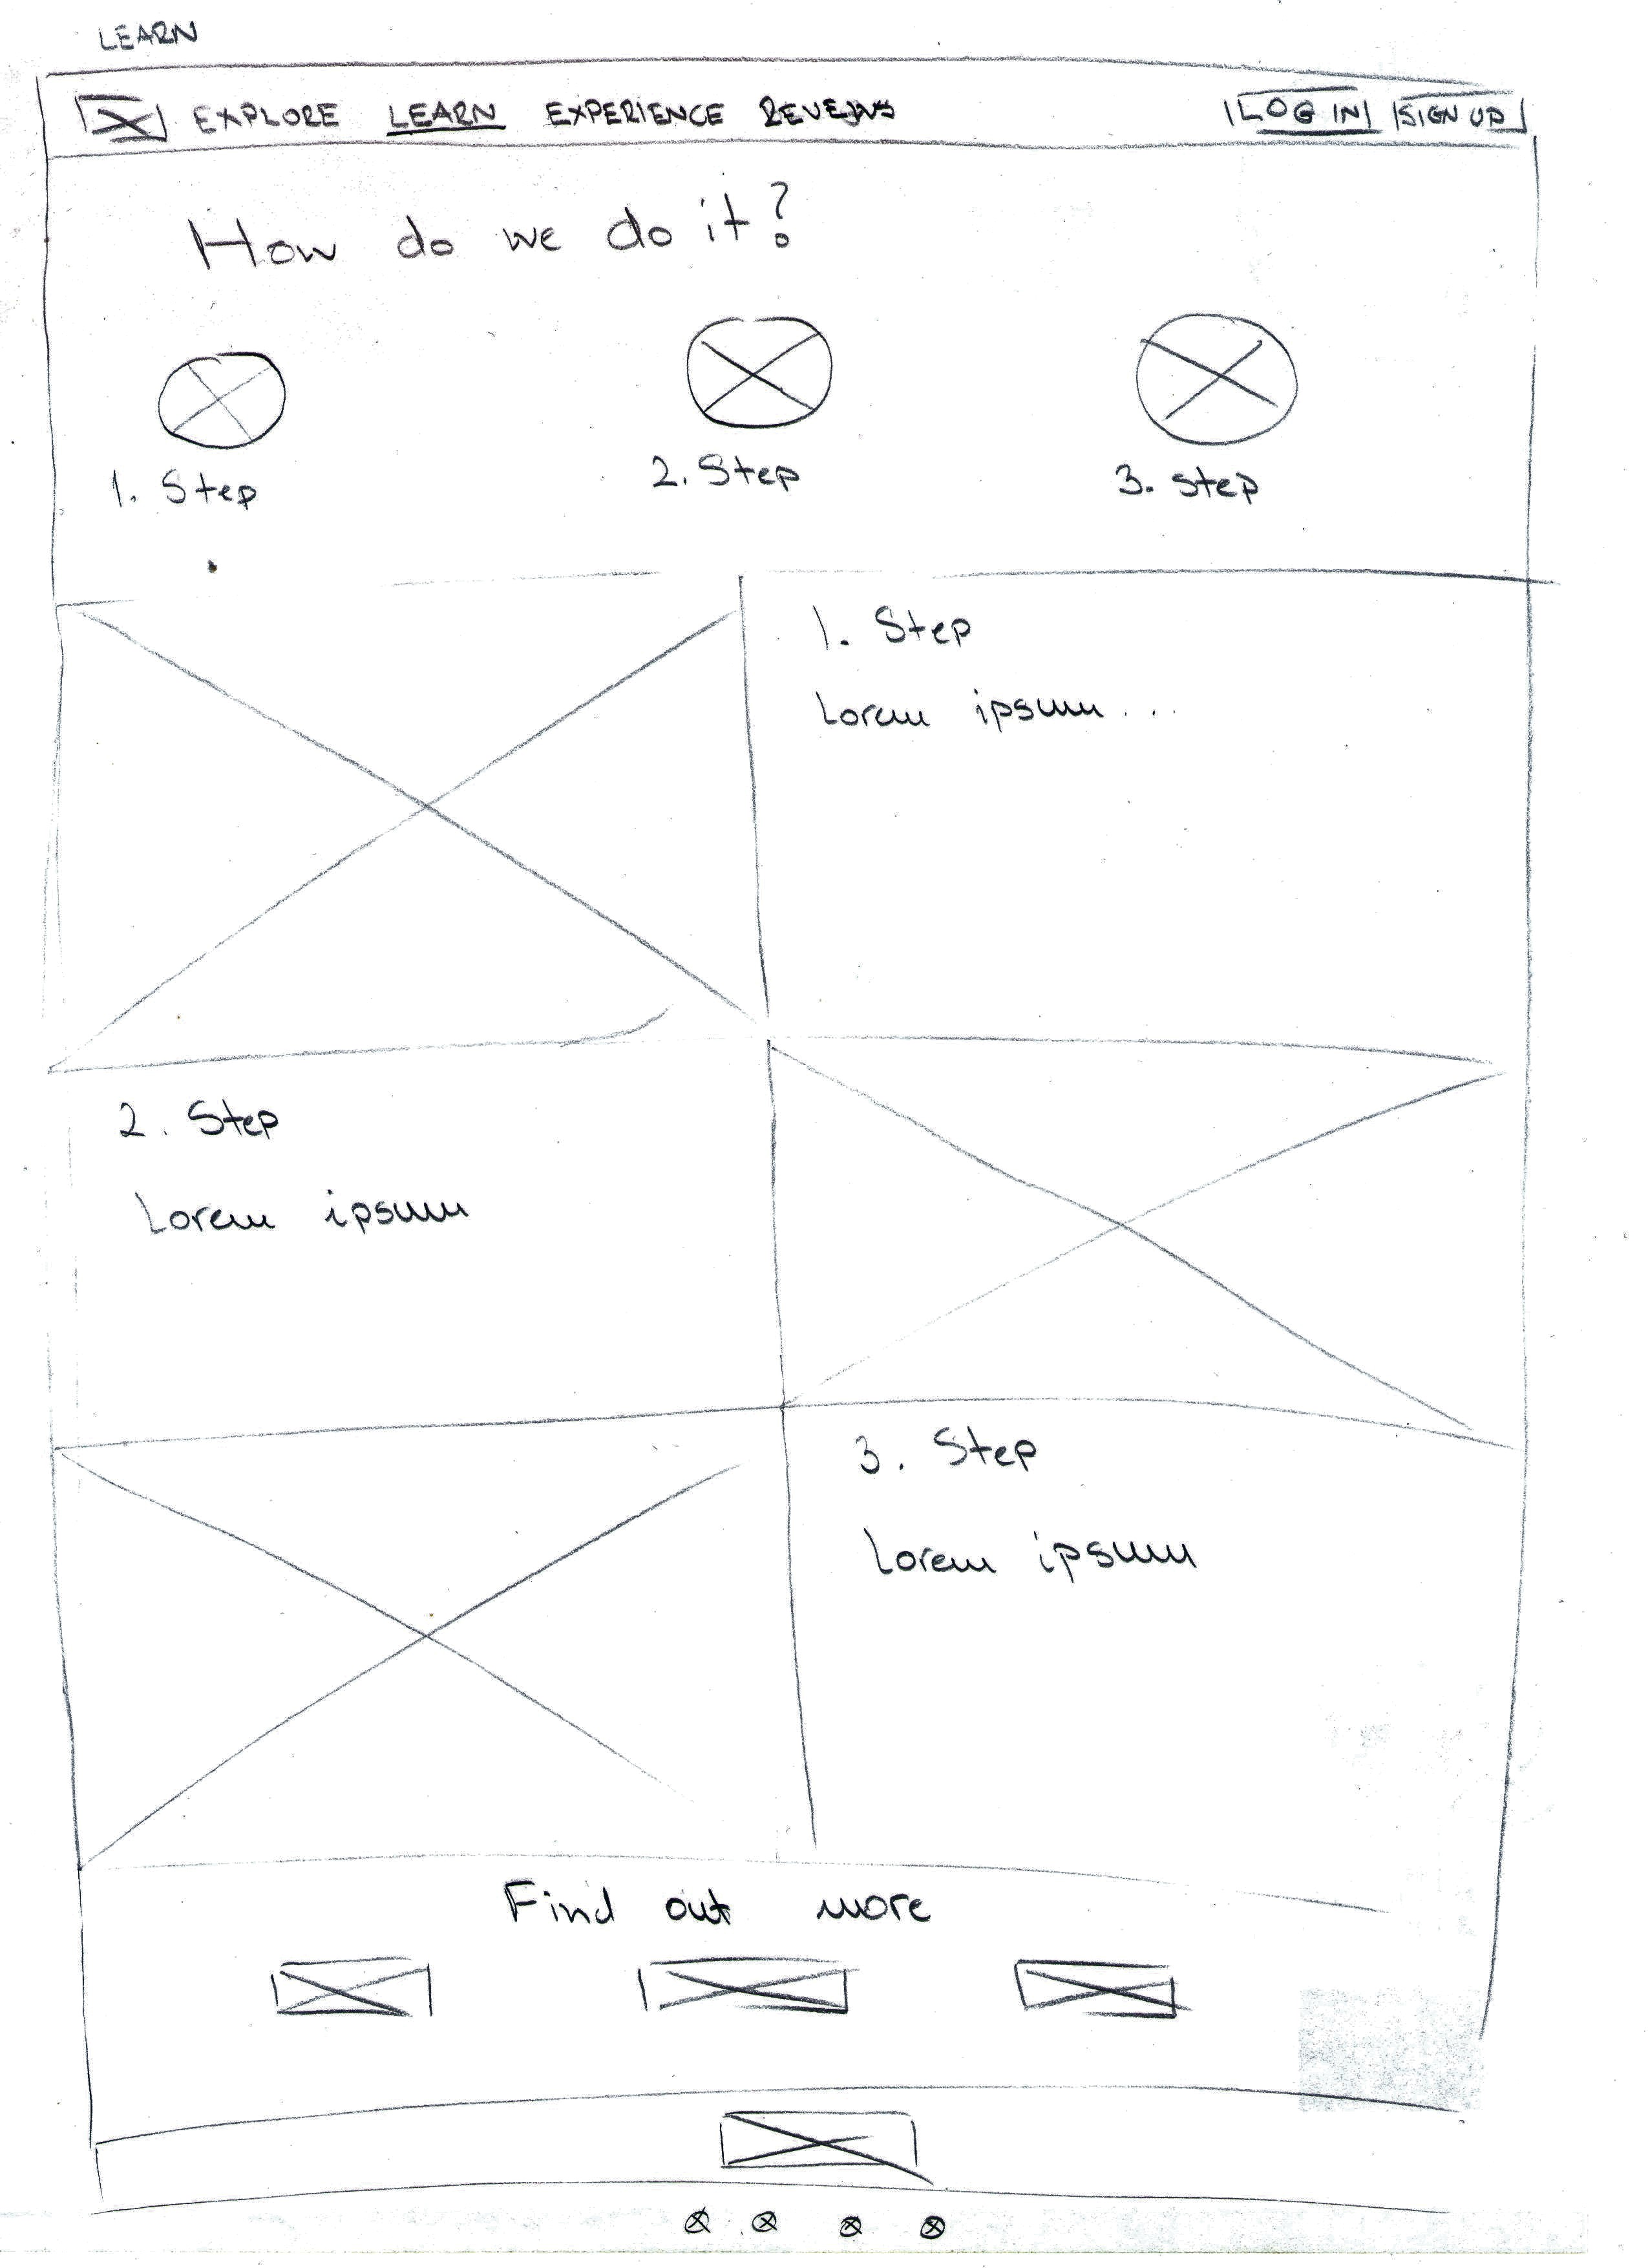 LEARN
EXPLORE LEARN EXPERIENCE REVEIWS LOG IN SIGN UP
How do we do it?
1. Step 2. Step 3. Step
1. Step
Lorem ipsum...
2. Step
Lorem ipsum
3. Step
Lorem ipsum
Find out more